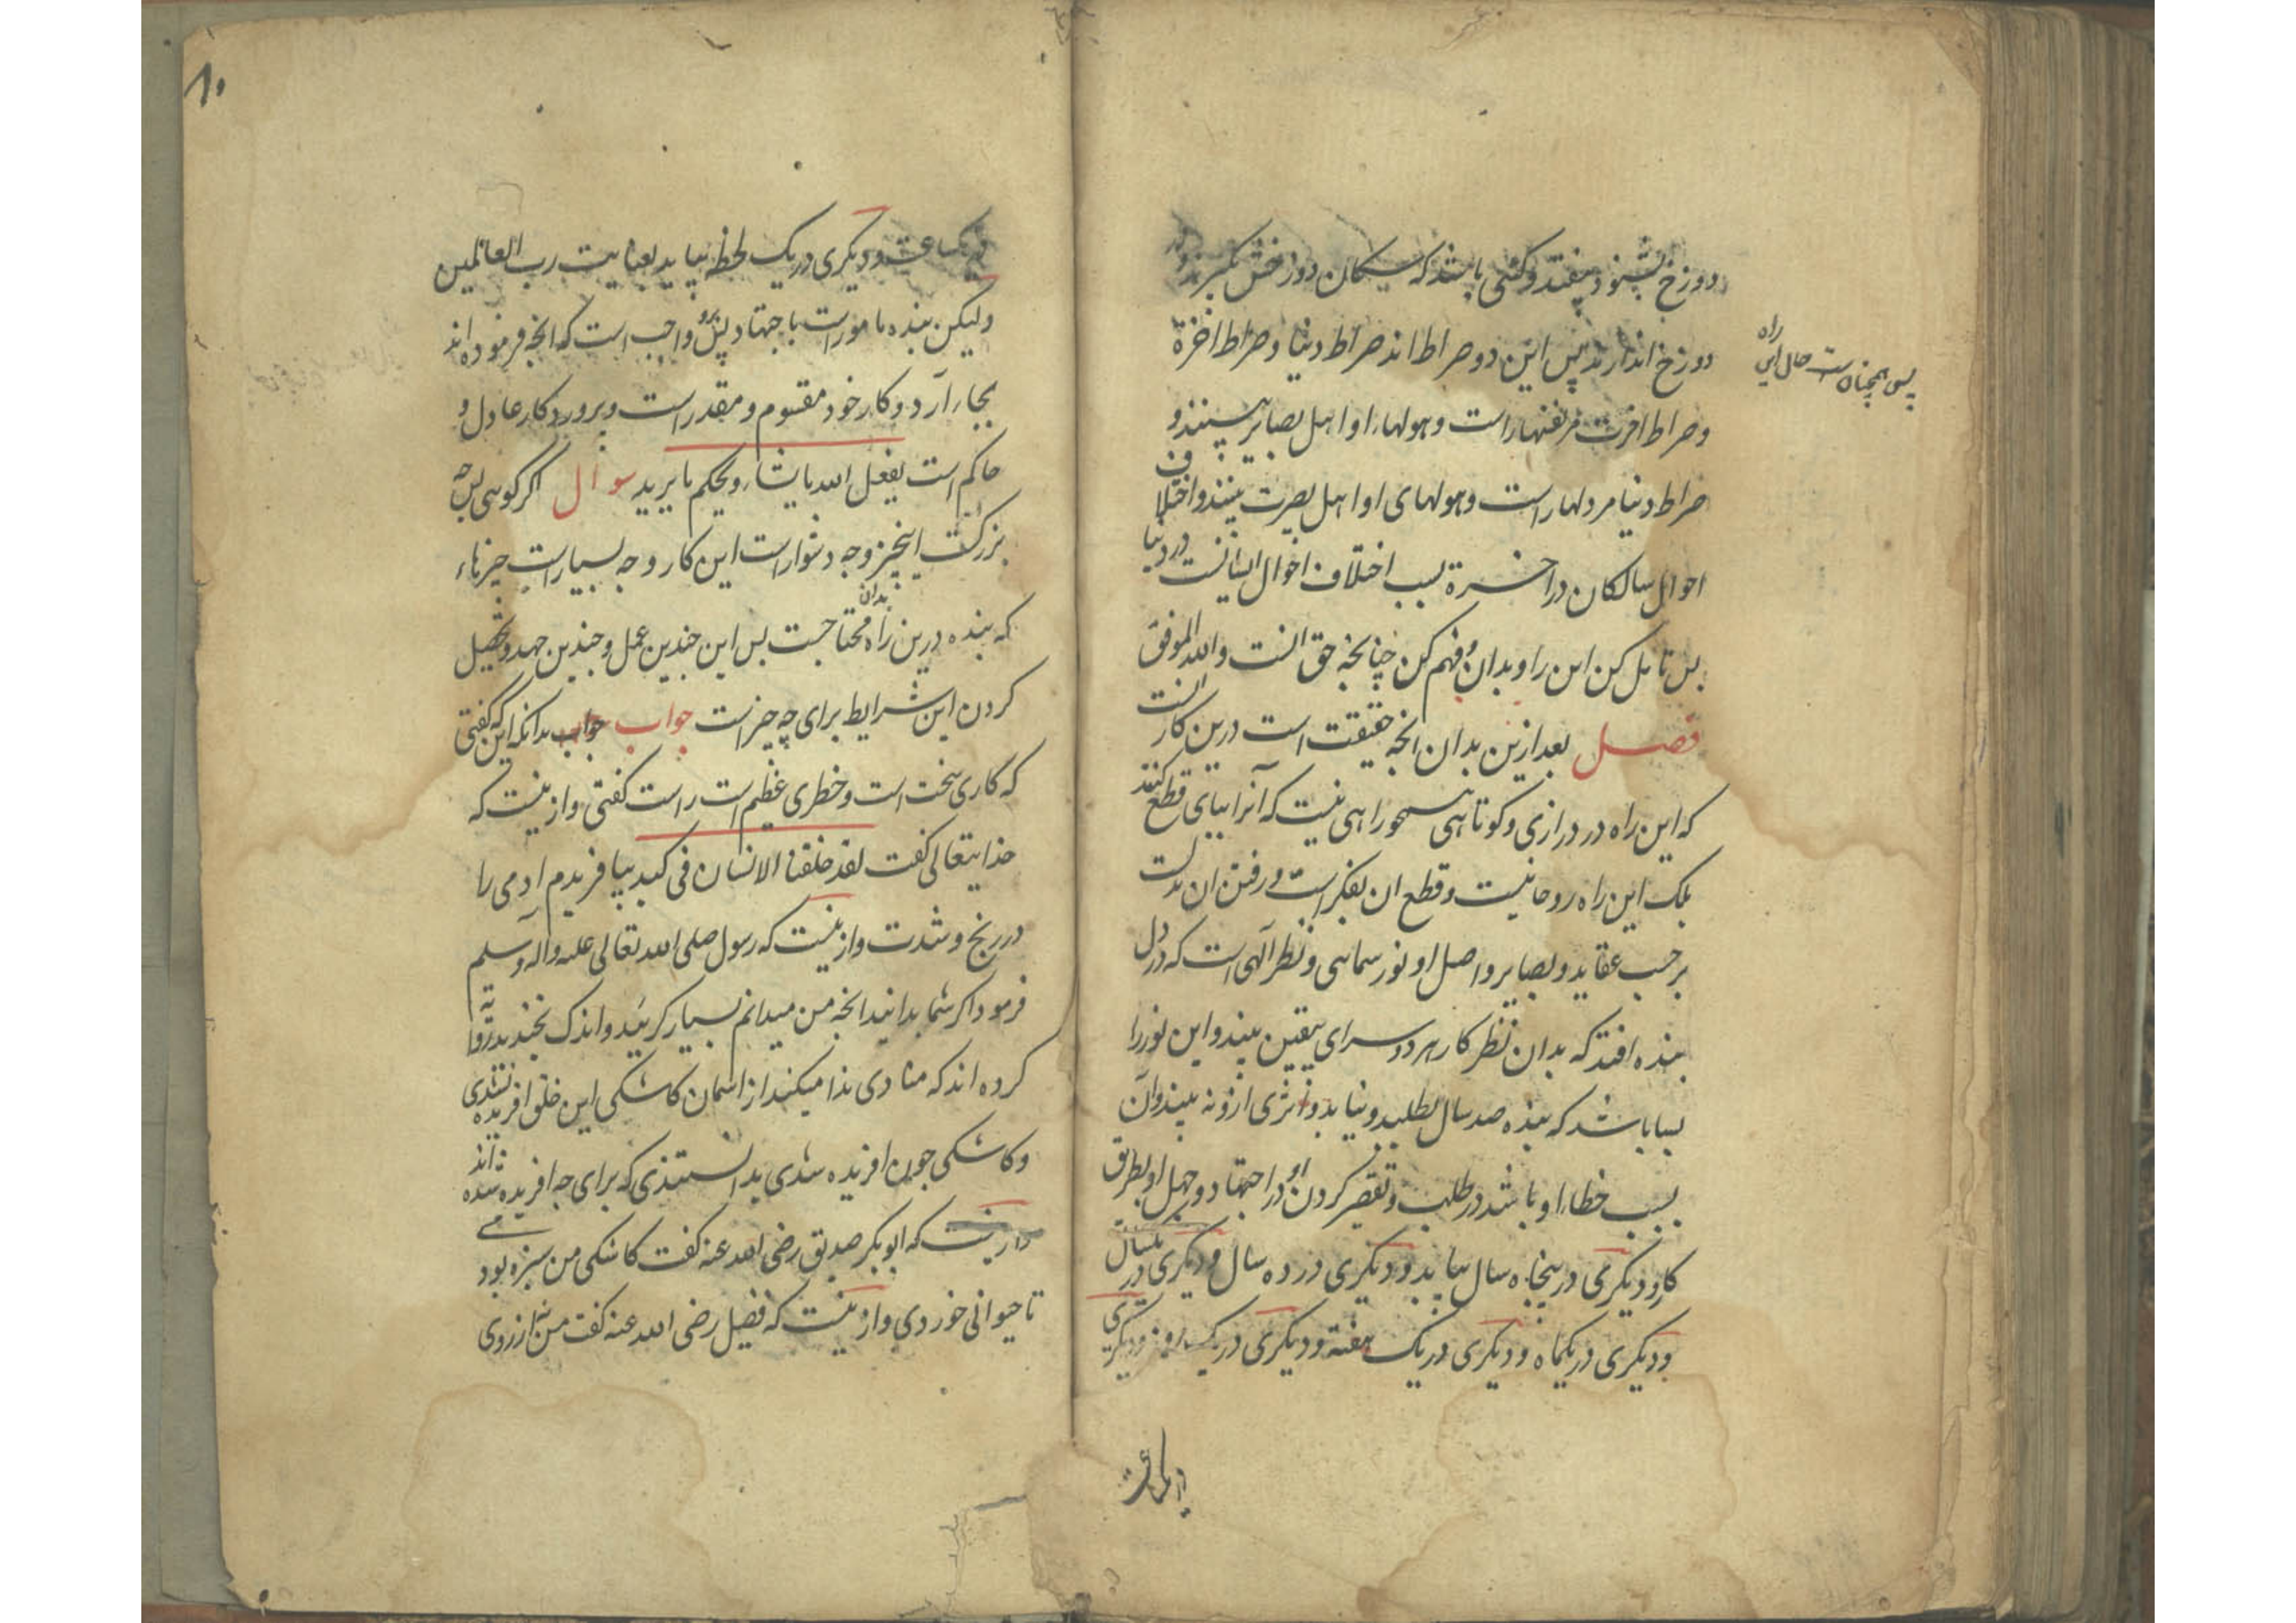 دوزخ بشنود بیفتد و کسی باشد که سکان دوزخش بگیرند و در
دوزخ اندازند پس این دو صراط اند صراط دنیا و صراط اخرة
راه
پس همچنان است حال این
و صراط اخرت مر نفنهاراست و هولهاء او اهل بصایر بینند و
صراط دنیا مر دلهاراست و هولهای او اهل بصیرت بینند و اختلاف
احوال سالکان در اخرة بسبب اختلاف احوال ایشانست در دنیا
پس تامل کن این را و بدان و فهم کن چنانچه حق انست والله الموفق
فصل بعد ازین بدان انچه حقیقت است درین کار انست
که این راه در درازی و کوتاهی همچو راهی نیست که آنرا بپای قطع کنند
بلک این راه روحانیست و قطع ان بفکر است و رفتن ان بدلست
برحسب عقاید و بصایر و اصل او نور سمائی و نظر آلهی است که در دل
بنده افتد که بدان نظر کار هر دو سرای بیقین بیند و این نور را
بسا باشد که بنده صد سال بطلبد و نیابد و اثری ازو نه بیند و آن
بسبب خطاء او باشد در طلب و تقصیر کردن او در اجتهاد و جهل او بطریق
کار و دیگری در پنجاه سال بیابد و دیگری در ده سال و دیگری در یکسال
و دیگری در یکماه و دیگری در یک هفته و دیگری در یک روز و دیگری
در یکساعت
۱۰
در یکساعت و دیگری در یک لحظه بیابد بعنایت رب العالمین
ولیکن بنده مامورست باجتهاد پس برو واجب است که انچه فرموده اند
بجاء آرد و کار خود مقسوم و مقدر است و پروردکار عادل و
حاکم است یفعل الله ما یشاء و یحکم ما یرید سوال اکر کوئی پس چه
بزرکست اینچیز و چه دشوار است این کار و چه بسیار است چیزهاء
که بنده درین راه بدان محتاجست پس این چندین عمل و چندین جهد و تحصیل
کردن این شرایط برای چه چیز است جواب جواب بدانکه این که کفتی
که کاری سخت است و خطری عظیم است راست کفتی و ازینست که
خدایتعالی کفت لقد خلقنا الانسان فی کبد بیافریدم ادمی را
در رنج و شدت و ازینست که رسول صلی الله تعالی علیه واله وسلم
فرمود اکر شما بدانید انچه من میدانم بسیار کریید و اندک بخندید و روایة
کرده اند که منادی ندا میکند از اسمان کاشکی این خلق افریده نشدندی
و کاشکی چون افریده شدی بدانستندی که برای چه افریده شده اند
و ازینست که ابوبکر صدیق رضی الله عنه کفت کاشکی من سبزه بودمی
تا حیوانی خوردی و ازینست که فضیل رضی الله عنه کفت من ارزوی